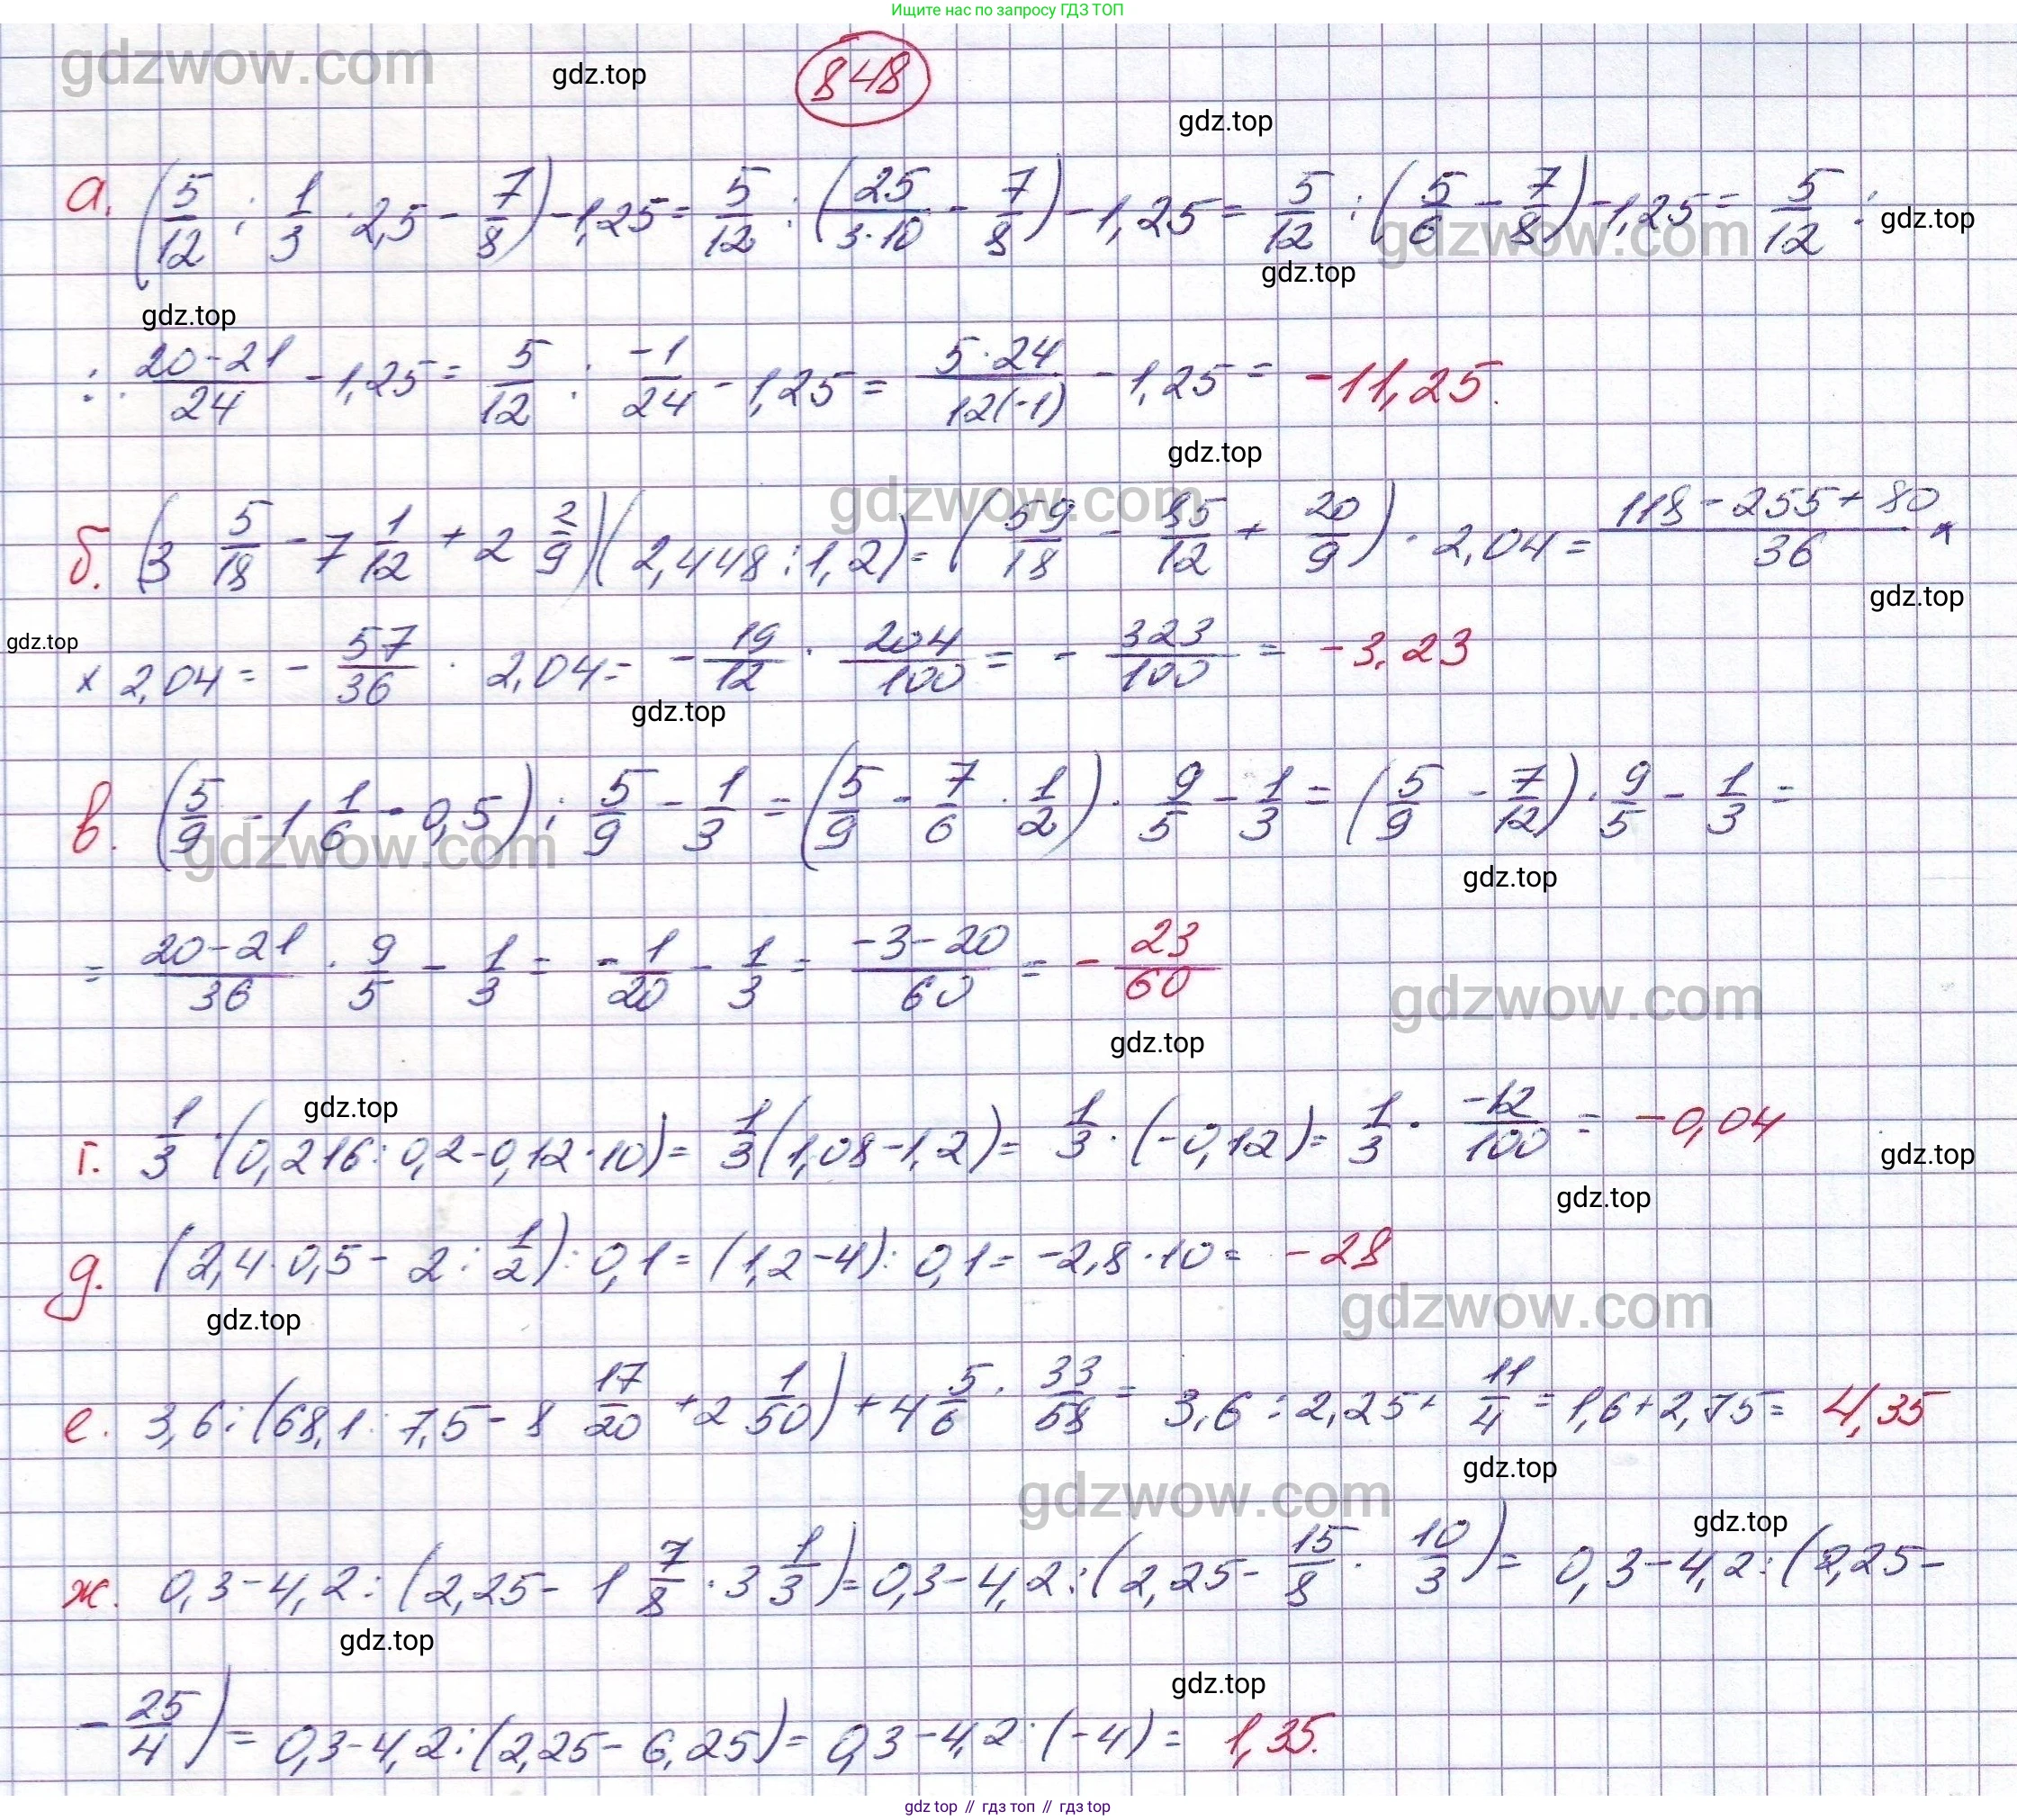 Ищите нас по запросу ГДЗ ТОП
gdzwow.com
gdz.top
848
gdz.top
а. (5/12 : 1/3 · 2,5 - 7/8) - 1,25 = 5/12 : (25/3·10 - 7/8) - 1,25 = 5/12 : (5/6 - 7/8) - 1,25 = 5/12 :
gdz.top
gdzwow.com
gdz.top
gdz.top
: 20-21/24 - 1,25 = 5/12 : -1/24 - 1,25 = 5·24/12(-1) - 1,25 = -11,25.
gdz.top
gdzwow.com
б. (3 5/18 - 7 1/12 + 2 2/9)(2,448 : 1,2) = (59/18 - 85/12 + 20/9) · 2,04 = 118 - 255 + 80/36 ×
gdz.top
gdz.top
× 2,04 = - 57/36 · 2,04 = - 19/12 · 204/100 = - 323/100 = -3,23
gdz.top
в. (5/9 - 1 1/6 · 0,5) : 5/9 - 1/3 = (5/9 - 7/6 · 1/2) · 9/5 - 1/3 = (5/9 - 7/12) · 9/5 - 1/3 =
gdzwow.com
gdz.top
= 20-21/36 · 9/5 - 1/3 = -1/20 - 1/3 = -3-20/60 = - 23/60
gdzwow.com
gdz.top
gdz.top
г. 1/3 · (0,216 : 0,2 - 0,12 · 10) = 1/3 (1,08 - 1,2) = 1/3 · (-0,12) = 1/3 · -12/100 = -0,04
gdz.top
gdz.top
д. (2,4 · 0,5 - 2 : 1/2) : 0,1 = (1,2 - 4) : 0,1 = -2,8 · 10 = -28
gdz.top
gdzwow.com
е. 3,6 : (68,1 : 7,5 - 8 17/20 + 2 1/50) + 4 5/6 · 33/58 = 3,6 : 2,25 + 11/4 = 1,6 + 2,75 = 4,35
gdz.top
gdzwow.com
gdz.top
ж. 0,3 - 4,2 : (2,25 - 1 7/8 · 3 1/3) = 0,3 - 4,2 : (2,25 - 15/8 · 10/3) = 0,3 - 4,2 : (2,25 -
gdz.top
gdz.top
- 25/4) = 0,3 - 4,2 : (2,25 - 6,25) = 0,3 - 4,2 : (-4) = 1,35.
gdz.top // гдз топ // gdz.top